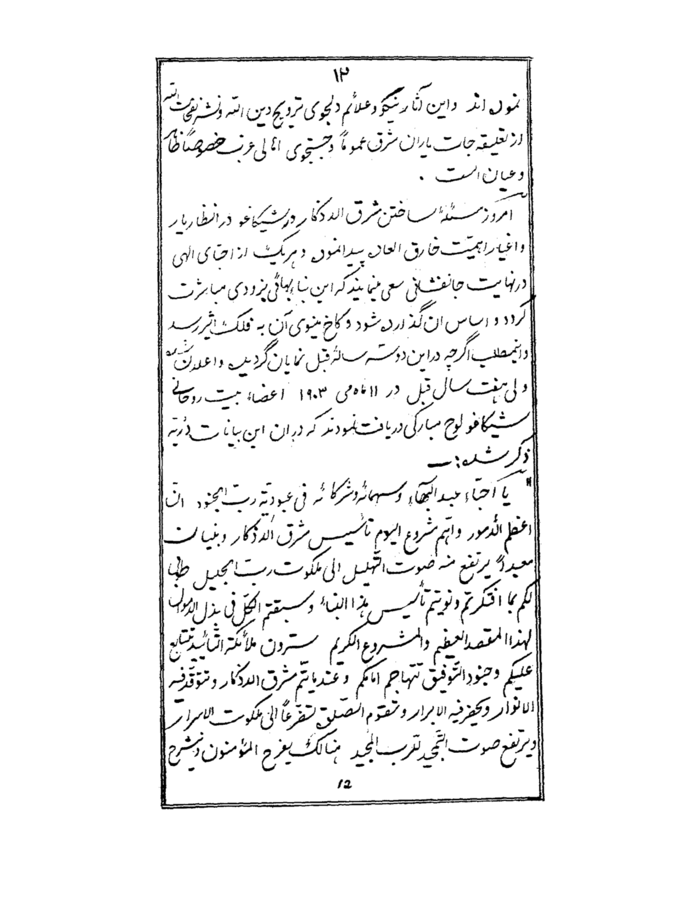 ۱۲
نموده اند و این آثار نیکو و علائم دلجوی ترویج دین الله و نشر نفحات الله
از تعلیقه جات یاران شرق عموماً و جستجوی اهالی غرب خصوصاً ظاهر
و عیان است .
امروز مسئلهٔ ساختن مشرق الاذکار در شیکاغو در انظار یار
و اغیار اهمیت خارق العاده پیدا نموده و هر یک از احبای الهی
در نهایت جانفشانی سعی مینمایند که این بناء بهائی بزودی مباشرت
گردد و اساس ان گذارده شود و کاخ مینوی آن به فلک اثیر رسد
و اینمطلب اگرچه در این دو سه سالهٔ قبل نمایان گردیده و اعلان شده
ولی هفت سال قبل در ۱۱ ماه می ۱۹۰۳ اعضاء بیت روحانی
شیکاغو لوح مبارکی دریافت نمودند که در ان این بیانات دریه
ذکر شده :—
" یا احباء عبدالبهاء و سهمائه و شرکائه فی عبودیة رب الجنود ان
اعظم الامور و اهم مشروع الیوم تأسیس مشرق الاذکار و بنیان
معبد یرتفع منه صوت التهلیل الی ملکوت رب الجلیل طوبی
لکم بما افتکرتم و نویتم تأسیس هذا البناء و سبقتم الکل فی بذل الاموال
لهذا المقصد العظیم والمشروع الکریم سترون ملائکة التأئید تتتابع
علیکم و جنود التوفیق تتهاجم امامکم و عندما یتم مشرق الاذکار و تتوقد فیه
الانوار و یحضر فیه الابرار و تقوم الصلوة تضرعاً الی ملکوت الاسرار
و یرتفع صوت التمجید لرب المجید هنالک یفرح المؤمنون و ینشرح
12